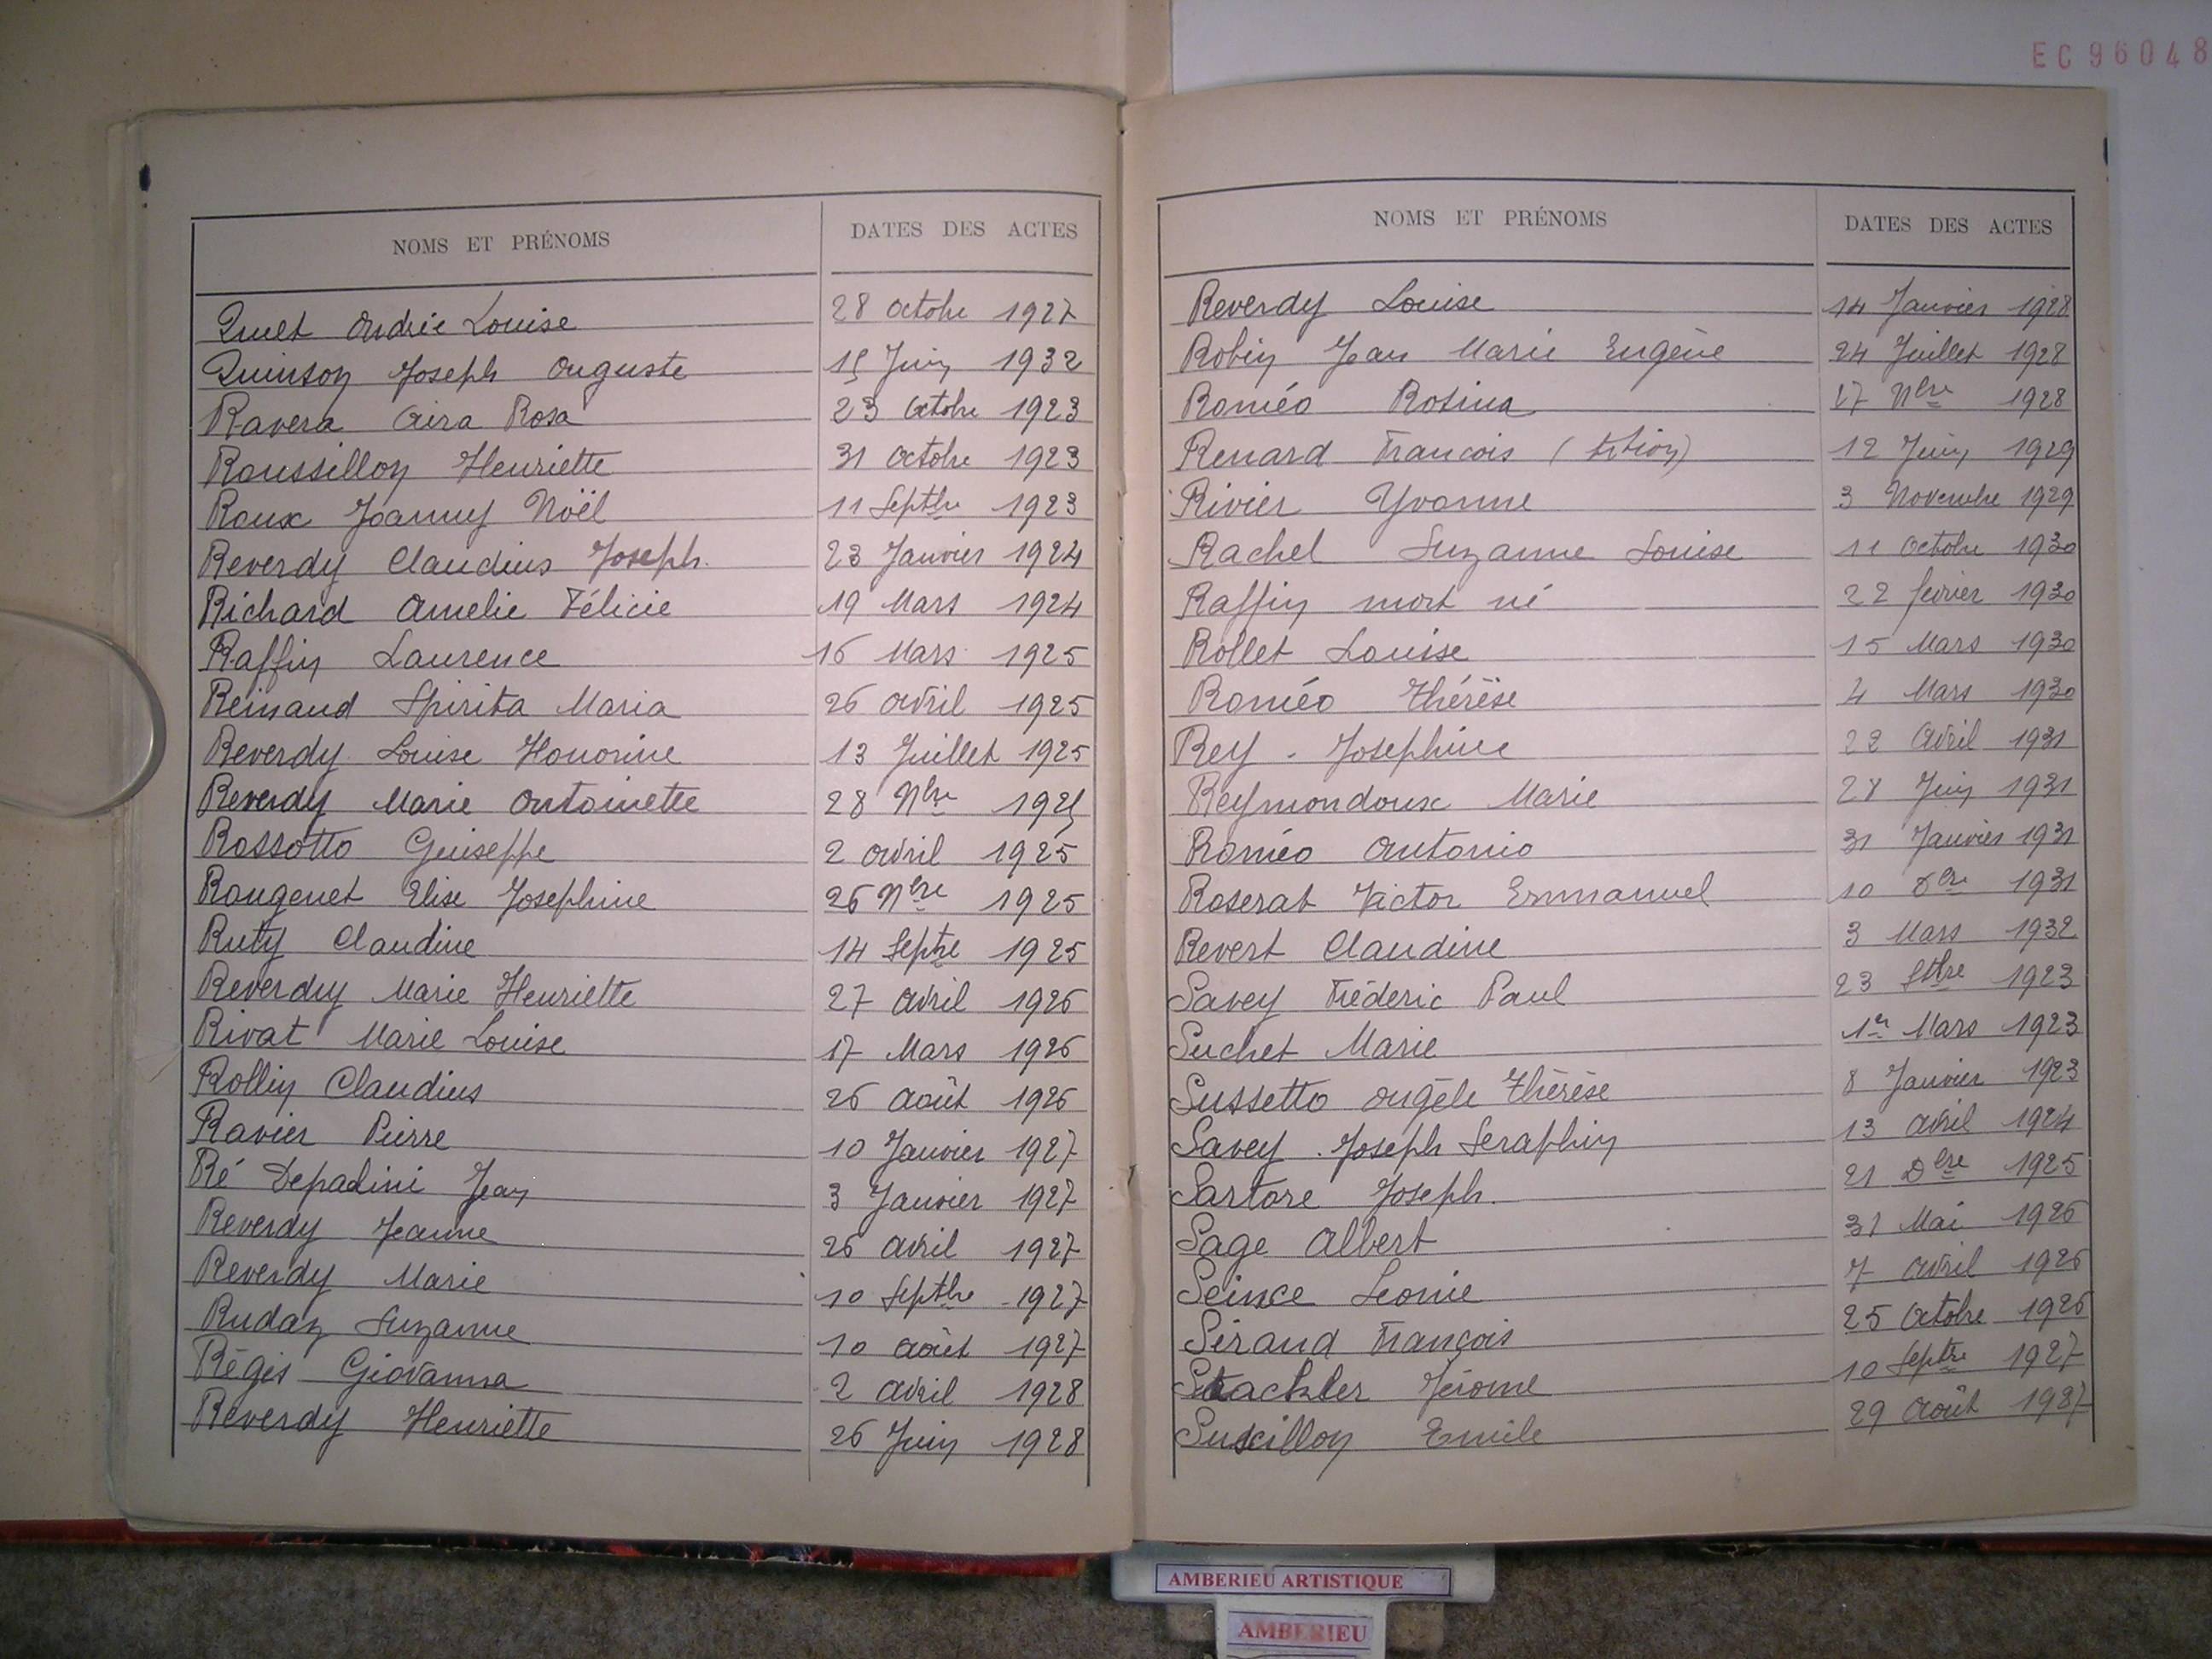 EC 96048
NOMS ET PRÉNOMS DATES DES ACTES
Quet Andrée Louise 28 octobre 1927
Quinson Joseph Auguste 15 Juin 1932
Ravera Rosa 23 Octobre 1923
Roussillon Henriette 31 octobre 1923
Roux Joanny Noël 11 Septbre 1923
Reverdy Claudius Joseph. 23 Janvier 1924
Richard Amelie Félicie 19 Mars 1924
Raffin Laurence 16 Mars 1925
Reinaud Spirita Maria 26 avril 1925
Reverdy Louise Honorine 13 Juillet 1925
Reverdy Marie Antoinette 28 Nbre 1925
Rossotto Guiseppe 2 avril 1925
Rougenet Elise Josephine 26 Nbre 1925
Ruty Claudine 14 Septre 1925
Reverdy Marie Henriette 27 avril 1926
Rivat Marie Louise 17 Mars 1926
Rollin Claudius 26 août 1926
Ravier Pierre 10 Janvier 1927
Ré Depadini Jean 3 Janvier 1927
Reverdy Jeanne 26 avril 1927
Reverdy Marie 10 Septbre 1927
Rudaz Suzanne 10 août 1927
Régis Giovanna 2 avril 1928
Reverdy Henriette 26 Juin 1928
NOMS ET PRÉNOMS DATES DES ACTES
Reverdy Louise 14 Janvier 1928
Robin Jean Marie Eugène 24 Juillet 1928
Roméo Rosina 17 Nbre 1928
Renard Francois 12 Juin 1929
Rivier Yvonne 3 Novembre 1929
Rachel Suzanne Louise 11 Octobre 1930
Raffin mort né 22 fevrier 1930
Rollet Louise 15 Mars 1930
Roméo Thérèse 4 Mars 1930
Rey - Josephine 22 Avril 1931
Reymondoux Marie 28 Juin 1931
Roméo Antonio 31 Janvier 1931
Roserat Victor Emmanuel 10 Dbre 1931
Revert Claudine 3 Mars 1932
Savey Fréderic Paul 23 1923
Suchet Marie 1er Mars 1923
Sussetto Angèle Thérèse 8 Janvier 1923
Savey Joseph Seraphin 13 avril 1924
Sartore Joseph. 21 Dbre 1925
Sage Albert 31 Mai 1926
Seince Leonie 7 avril 1926
Sérand François 25 Octobre 1926
Stackler Jérome 10 Septre 1927
Suscillon Emile 29 Août 1927
AMBERIEU ARTISTIQUE
AMBERIEU